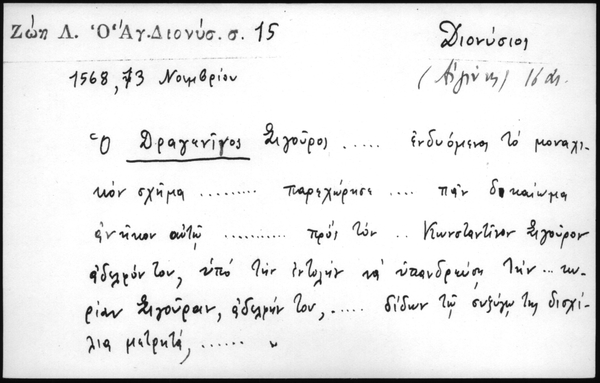 Ζώη Λ. Ὁ Ἅγ. Διονύσ. σ. 15
Διονύσιος
(Αἰγίνης) 16 αι.
1568, 13 Νοεμβρίου
Ὁ Δραγανῖγος Σιγοῦρος ..... ἐνδυόμενος τὸ μοναχι-
κὸν σχῆμα ......... παρεχώρησε .... πᾶν δικαίωμα
ἀνῆκον αὐτῷ .......... πρὸς τὸν .. Κωνσταντῖνον Σιγοῦρον
ἀδελφόν του, ὑπὸ τὴν ἐντολὴν νὰ ὑπανδρεύσῃ τὴν ... κυ-
ρίαν Σιγοῦραιν, ἀδελφήν του, ..... δίδων τῷ συζύγῳ της δισχί-
λια μετρητά, ...... "